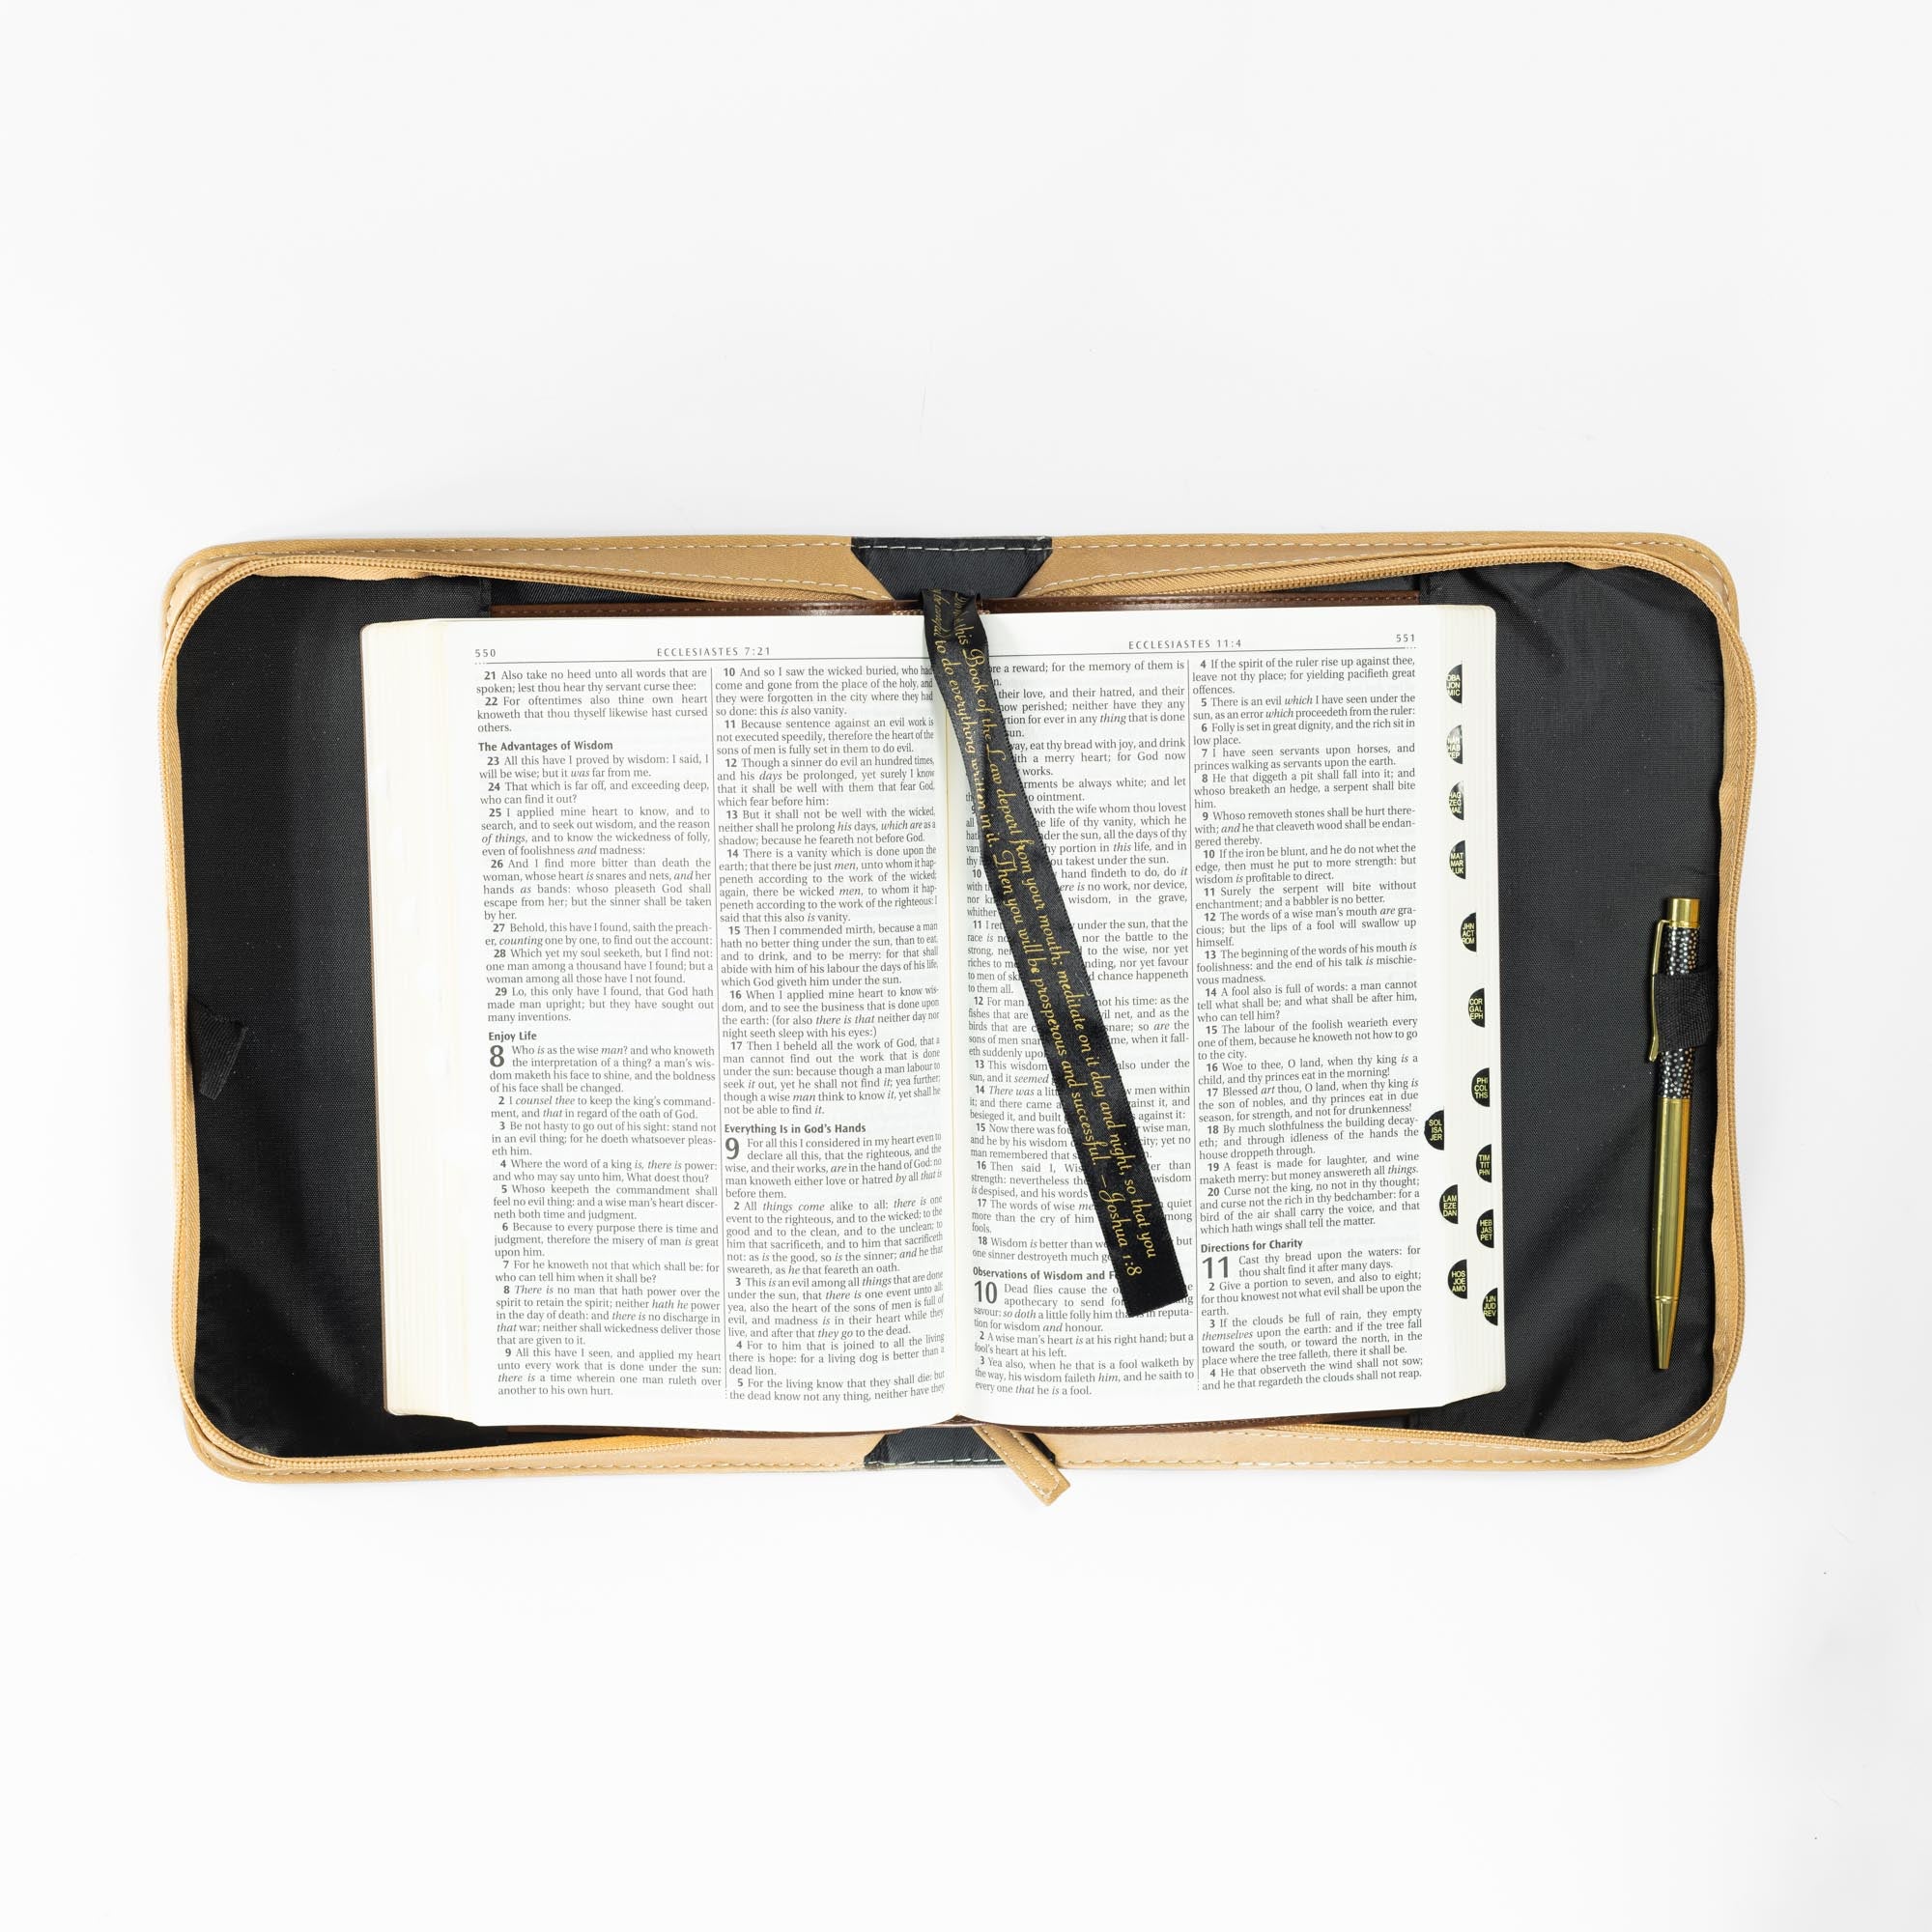 550
ECCLESIASTES 7:21
21 Also take no heed unto all words that are
spoken; lest thou hear thy servant curse thee:
22 For oftentimes also thine own heart
knoweth that thou thyself likewise hast cursed
others.
The Advantages of Wisdom
23 All this have I proved by wisdom: I said, I
will be wise; but it was far from me.
24 That which is far off, and exceeding deep,
who can find it out?
25 I applied mine heart to know, and to
search, and to seek out wisdom, and the reason
of things, and to know the wickedness of folly,
even of foolishness and madness:
26 And I find more bitter than death the
woman, whose heart is snares and nets, and her
hands as bands: whoso pleaseth God shall
escape from her; but the sinner shall be taken
by her.
27 Behold, this have I found, saith the preach-
er, counting one by one, to find out the account:
28 Which yet my soul seeketh, but I find not:
one man among a thousand have I found; but a
woman among all those have I not found.
29 Lo, this only have I found, that God hath
made man upright; but they have sought out
many inventions.
Enjoy Life
8 Who is as the wise man? and who knoweth
the interpretation of a thing? a man's wis-
dom maketh his face to shine, and the boldness
of his face shall be changed.
2 I counsel thee to keep the king's command-
ment, and that in regard of the oath of God.
3 Be not hasty to go out of his sight: stand not
in an evil thing; for he doeth whatsoever pleas-
eth him.
4 Where the word of a king is, there is power:
and who may say unto him, What doest thou?
5 Whoso keepeth the commandment shall
feel no evil thing: and a wise man's heart discer-
neth both time and judgment.
6 Because to every purpose there is time and
judgment, therefore the misery of man is great
upon him.
7 For he knoweth not that which shall be: for
who can tell him when it shall be?
8 There is no man that hath power over the
spirit to retain the spirit; neither hath he power
in the day of death: and there is no discharge in
that war; neither shall wickedness deliver those
that are given to it.
9 All this have I seen, and applied my heart
unto every work that is done under the sun:
there is a time wherein one man ruleth over
another to his own hurt.
10 And so I saw the wicked buried, who had
come and gone from the place of the holy, and
they were forgotten in the city where they had
so done: this is also vanity.
11 Because sentence against an evil work is
not executed speedily, therefore the heart of the
sons of men is fully set in them to do evil.
12 Though a sinner do evil an hundred times,
and his days be prolonged, yet surely I know
that it shall be well with them that fear God,
which fear before him:
13 But it shall not be well with the wicked,
neither shall he prolong his days, which are as a
shadow; because he feareth not before God.
14 There is a vanity which is done upon the
earth; that there be just men, unto whom it hap-
peneth according to the work of the wicked;
again, there be wicked men, to whom it hap-
peneth according to the work of the righteous: I
said that this also is vanity.
15 Then I commended mirth, because a man
hath no better thing under the sun, than to eat,
and to drink, and to be merry: for that shall
abide with him of his labour the days of his life,
which God giveth him under the sun.
16 When I applied mine heart to know wis-
dom, and to see the business that is done upon
the earth: (for also there is that neither day nor
night seeth sleep with his eyes:)
17 Then I beheld all the work of God, that a
man cannot find out the work that is done
under the sun: because though a man labour to
seek it out, yet he shall not find it; yea further;
though a wise man think to know it, yet shall he
not be able to find it.
Everything Is in God's Hands
9 For all this I considered in my heart even to
declare all this, that the righteous, and the
wise, and their works, are in the hand of God: no
man knoweth either love or hatred by all that is
before them.
2 All things come alike to all: there is one
event to the righteous, and to the wicked; to the
good and to the clean, and to the unclean; to
him that sacrificeth, and to him that sacrificeth
not: as is the good, so is the sinner; and he that
sweareth, as he that feareth an oath.
3 This is an evil among all things that are done
under the sun, that there is one event unto all:
yea, also the heart of the sons of men is full of
evil, and madness is in their heart while they
live, and after that they go to the dead.
4 For to him that is joined to all the living
there is hope: for a living dog is better than a
dead lion.
5 For the living know that they shall die: but
the dead know not any thing, neither have they
this Book of the Law depart from your mouth; meditate on it day and night, so that you
to do everything written in it. Then you will be prosperous and successful. –Joshua 1:8
ECCLESIASTES 11:4
551
a reward; for the memory of them is
their love, and their hatred, and their
perished; neither have they any
for ever in any thing that is done
sun.
eat thy bread with joy, and drink
with a merry heart; for God now
works.
be always white; and let
ointment.
with the wife whom thou lovest
all life of thy vanity, which he
under the sun, all the days of thy
portion in this life, and in
thy takest under the sun.
10 hand findeth to do, do it
with is no work, nor device,
nor wisdom, in the grave,
whither
11 I under the sun, that the
race is nor the battle to the
strong, to the wise, nor yet
riches to nor yet favour
to men of chance happeneth
to them all.
12 For man not his time: as the
fishes that are evil net, and as the
birds that are so are the
sons of men when it fall-
eth suddenly
13 This wisdom also under the
sun, and it seemed
14 There was a men within
it; and there came a against it, and
besieged it, and built against it:
15 Now there was wise man,
and he by his wisdom yet no
man remembered that
16 Then said I, than
strength: nevertheless the wisdom
is despised, and his words
17 The words of wise quiet
more than the cry of him among
fools.
18 Wisdom is better than but
one sinner destroyeth much
Observations of Wisdom and
10 Dead flies cause the
apothecary to send
savour: so doth a little folly him in reputa-
tion for wisdom and honour.
2 A wise man's heart is at his right hand; but a
fool's heart at his left.
3 Yea also, when he that is a fool walketh by
the way, his wisdom faileth him, and he saith to
every one that he is a fool.
4 If the spirit of the ruler rise up against thee,
leave not thy place; for yielding pacifieth great
offences.
5 There is an evil which I have seen under the
sun, as an error which proceedeth from the ruler:
6 Folly is set in great dignity, and the rich sit in
low place.
7 I have seen servants upon horses, and
princes walking as servants upon the earth.
8 He that diggeth a pit shall fall into it; and
whoso breaketh an hedge, a serpent shall bite
him.
9 Whoso removeth stones shall be hurt there-
with; and he that cleaveth wood shall be endan-
gered thereby.
10 If the iron be blunt, and he do not whet the
edge, then must he put to more strength: but
wisdom is profitable to direct.
11 Surely the serpent will bite without
enchantment; and a babbler is no better.
12 The words of a wise man's mouth are gra-
cious; but the lips of a fool will swallow up
himself.
13 The beginning of the words of his mouth is
foolishness: and the end of his talk is mischie-
vous madness.
14 A fool also is full of words: a man cannot
tell what shall be; and what shall be after him,
who can tell him?
15 The labour of the foolish wearieth every
one of them, because he knoweth not how to go
to the city.
16 Woe to thee, O land, when thy king is a
child, and thy princes eat in the morning!
17 Blessed art thou, O land, when thy king is
the son of nobles, and thy princes eat in due
season, for strength, and not for drunkenness!
18 By much slothfulness the building decay-
eth; and through idleness of the hands the
house droppeth through.
19 A feast is made for laughter, and wine
maketh merry: but money answereth all things.
20 Curse not the king, no not in thy thought;
and curse not the rich in thy bedchamber: for a
bird of the air shall carry the voice, and that
which hath wings shall tell the matter.
Directions for Charity
11 Cast thy bread upon the waters: for
thou shalt find it after many days.
2 Give a portion to seven, and also to eight;
for thou knowest not what evil shall be upon the
earth.
3 If the clouds be full of rain, they empty
themselves upon the earth: and if the tree fall
toward the south, or toward the north, in the
place where the tree falleth, there it shall be.
4 He that observeth the wind shall not sow;
and he that regardeth the clouds shall not reap.
OBA
JON
MIC
MAT
MAR
LUK
JHN
ACT
ROM
COR
GAL
EPH
PHI
COL
THS
SOL
ISA
JER
TIM
TIT
PHN
LAM
EZE
DAN
HEB
JAS
PET
HOS
JOE
AMO
IJN
JUD
REV